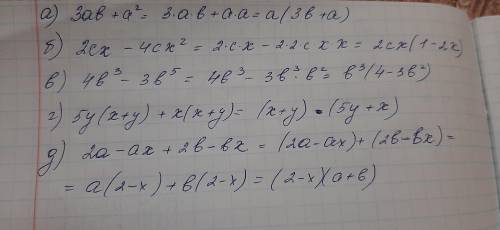 а) 3ab + a² = 3·a·b + a·a = a(3b+a)
б) 2cx - 4cx² = 2·c·x - 2·2·c x x = 2cx(1-2x)
в) 4b³ - 3b⁵ = 4b³ - 3b³·b² = b³(4-3b²)
г) 5y(x+y) + x(x+y) = (x+y)·(5y+x)
д) 2a - ax + 2b - bx = (2a-ax)+(2b-bx) =
= a(2-x) + b(2-x) = (2-x)(a+b)